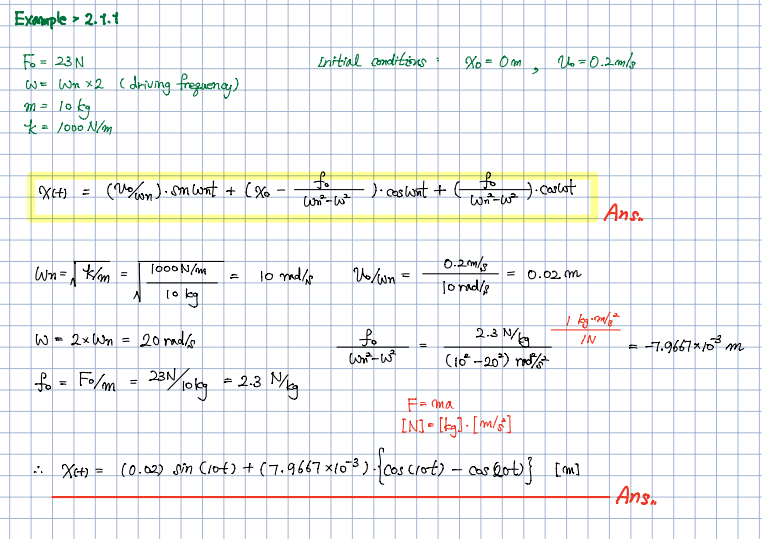 Example > 2.1.1
F₀ = 23N
Initial conditions : x₀ = 0m , v₀ = 0.2m/s
ω = ωn ×2 (driving frequency)
m = 10 kg
k = 1000 N/m
x(t) = (v₀/ωn)·sinωnt + (x₀ - f₀/(ωn²-ω²))·cosωnt + (f₀/(ωn²-ω²))·cosωt
Ans.
ωn = √(k/m) = √(1000N/m / 10 kg) = 10 rad/s
v₀/ωn = 0.2m/s / 10 rad/s = 0.02 m
ω = 2×ωn = 20 rad/s
f₀/(ωn²-ω²) = 2.3 N/kg / (10²-20²) rad²/s² 1 kg·m/s² / 1N = -7.9667×10⁻³ m
f₀ = F₀/m = 23N/10kg = 2.3 N/kg
F = ma
[N] = [kg]·[m/s²]
∴ x(t) = (0.02) sin(10t) + (7.9667×10⁻³)·{cos(10t) - cos(20t)} [m]
Ans.